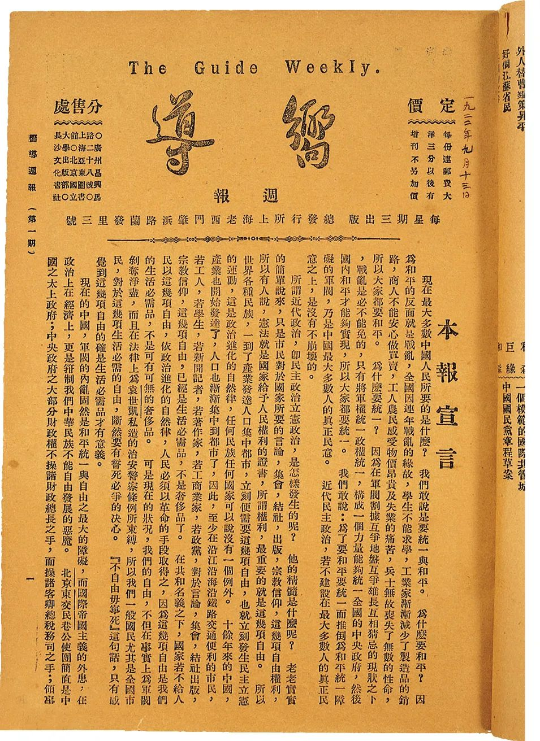 The Guide Weekly.
定價
每份連郵費大
洋三分以後有
增刊不另加價
一九二二年九月十三日
嚮導
週報
分售處
每星期三出版 總發行所上海老西門肇浜路蘭發里三號
嚮導週報 (第一期)
本報宣言
現在最大多數中國人民所要的是什麼? 我們敢說是要統一與和平。 為什麼要和平? 因
為和平的反面就是戰亂,全國因連年戰亂的緣故,學生不能求學,工業家漸漸減少了製造品的銷
路,商人不能安心做買賣,工人農民感受物價昂貴及失業的痛苦,兵士無故喪失了無數的性命,
所以大家都要和平。 為什麼要統一? 因為在軍閥割據互爭地盤互爭雄長互相猜忌的現狀之下
,戰亂是必不能免的,只有將軍權統一政權統一,構成一個力量能夠統一全國的中央政府,然後
國內和平才能夠實現,所以大家都要統一。 我們敢說:為了要和平要統一而推倒為和平統一障
礙的軍閥,乃是中國最大多數人的真正民意。 近代民主政治,若不建設在最大多數人的真正民
意之上,是沒有不崩壞的。
所謂近代政治,卽民主政治立憲政治,是怎樣發生的呢? 他的精髓是什麼呢? 老老實實
的簡單說來,只是市民對於國家所要的言論,集會,結社,出版,宗教信仰,這幾項自由權利,
所以有人說,憲法就是國家給予人民權利的證書,所謂權利,最重要的就是這幾項自由。 所以
世界各種民族,一到了產業發達人口集中都市,立刻便需要這幾項自由,也就立刻發生民主立憲
的運動,這是政治進化的自然律,任何民族任何國家可以說沒有一個例外。 十餘年來的中國,
產業也開始發達了,人口也漸漸集中到都市了,因此,至少在沿江沿海沿鐵路交通便利的市民,
若工人,若學生,若新聞記者,若著作家,若工商業家,若政黨,對於言論,集會,結社,出版,
宗教信仰,這幾項自由,已經是生活必需品,不是奢侈品了。 在共和名義之下,國家若不給人
民以這幾項自由,依政治進化的自然律,人民必須以革命的手段取得之,因為這幾項自由是我們
的生活必需品,不是可有可無的奢侈品。 可是現在的狀況,我們的自由,不但在事實上為軍閥
剝奪淨盡,而且在法律上為袁世凱私造的治安警察條例所束縛,所以我們一般國民尤其是全國市
民,對於這幾項生活必需的自由,斷然要有誓死必爭的決心。 『不自由毋寧死』這句話,只有感
覺到這幾項自由的確是生活必需品才有意義。
現在的中國,軍閥的內亂固然是和平統一與自由之最大的障礙,而國際帝國主義的外患,在
政治上在經濟上,更是箝制我們中華民族不能自由發展的惡魔。 北京東交民巷公使團簡直是中
國之太上政府;中央政府之大部分財政權不操諸財政總長之手,而操諸客卿總稅務司之手;領事
1
一個模範的國際北管城
中國國民黨章程草案